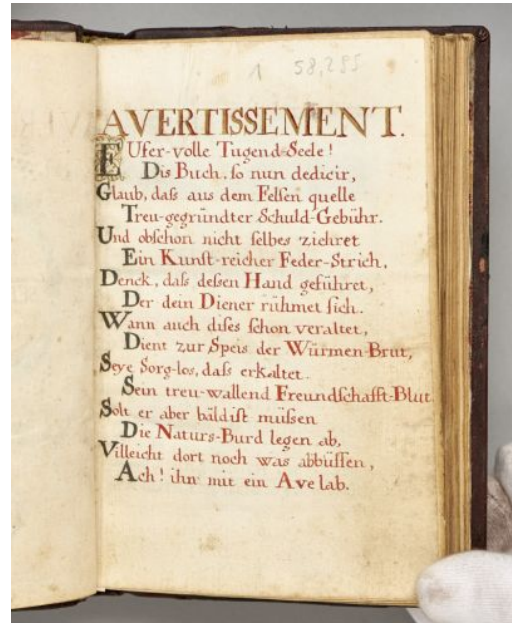 1 58,255
AVERTISSEMENT.
EUfer-volle Tugend-Seele!
Dis Buch, so nun dedicir,
Glaub, daſs aus dem Felſen quelle
Treu-gegründter Schuld-Gebühr.
Und obſchon nicht ſelbes ziehret
Ein Kunſt-reicher Feder-Strich,
Denck, daſs deſsen Hand geführet,
Der dein Diener rühmet ſich.
Wann auch diſes ſchon veraltet,
Dient zur Speis der Würmen-Brut,
Seye Sorg-los, daſs erkaltet
Sein treu-wallend Freundſchafft-Blut.
Solt er aber bäldiſt müſsen
Die Naturs-Burd legen ab,
Villeicht dort noch was abbüſſen,
Ach! ihn mit ein Ave lab.